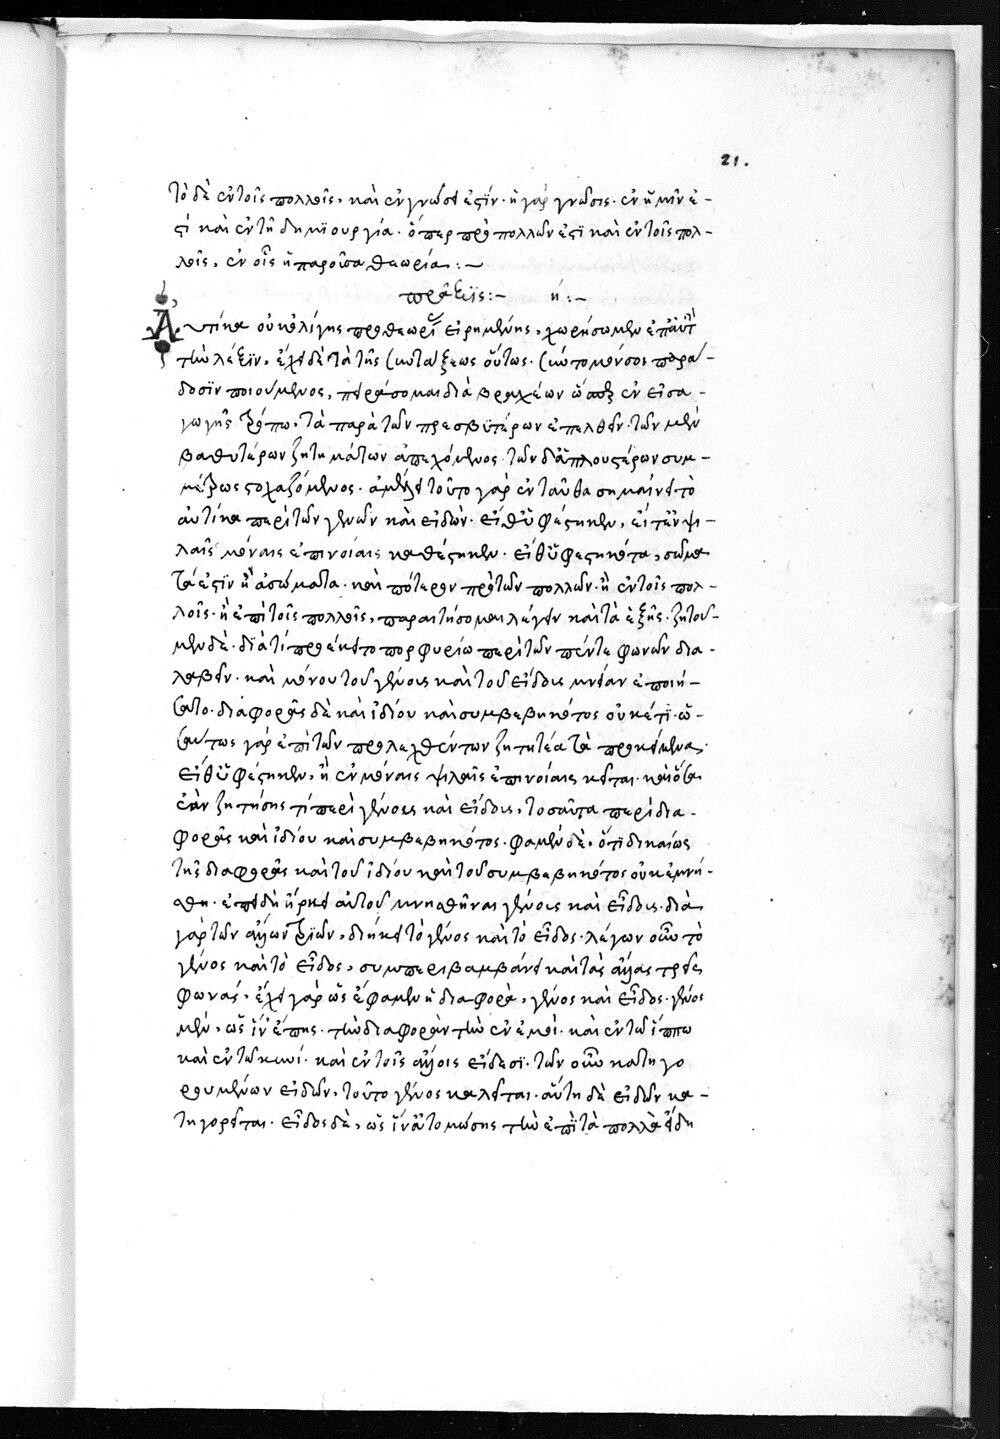 21.
τὸ δὲ ἐν τοῖς πολλοῖς, καὶ ἐν γνώσει ἐστίν· ἡ γὰρ γνῶσις· ἐν ἡμῖν ἐ-
στί καὶ ἐν τῇ δημιουργία· ὅπερ πρὸ πολλῶν ἐστὶ καὶ ἐν τοῖς πολ-
λοῖς, ἐν οἷς ἡ παροῦσα θεωρία :~
πρᾶξις :~ η :~
Αὐτίκα οὐκ ὀλίγης προθεωρί εἰρημένης, χωρήσωμεν ἐπ αὐτὴ
τὴν λέξιν, ἔχει δὲ τὰ τῆς συντάξεως οὕτως. σύντομόν σοι παρά-
δοσιν ποιούμενος, πειράσομαι διὰ βραχέων ὥσπερ ἐν εἰσα-
γωγῆς τρόπω, τὰ παρὰ τῶν πρεσβυτέρων ἐπελθεῖν· τῶν μὲν
βαθυτέρων ζητημάτων ἀπεχόμενος· τῶν δ ἁπλουστέρων συμ-
μέτρως στοχαζόμενος. ἀμέλει τοῦτο γὰρ ἐνταῦθα σημαίνει τὸ
αὐτίκα περὶ τῶν γενῶν καὶ εἰδῶν· εἴθ ὑφέστηκεν, εἴτ ἐν ψι-
λαῖς μόναις ἐπινοίαις καθέστηκεν· εἴθ ὑφεστηκότα, σώμα
τά ἐστιν ἢ ἀσώματα· καὶ πότερον πρὸ τῶν πολλῶν· ἢ ἐν τοῖς πολ-
λοῖς· ἢ ἐπὶ τοῖς πολλοῖς, παραιτήσομαι λέγειν καὶ τὰ ἑξῆς· ζητοῦ-
μεν δὲ· διὰ τί προέκειτο πορφυρίω περὶ τῶν πέντε φωνῶν δια-
λαβεῖν· καὶ μόνου τοῦ γένους καὶ τοῦ εἴδους μνείαν ἐποιή-
σατο· διαφορᾶς δὲ καὶ ἰδίου καὶ συμβεβηκότος οὐκέτι· ὡ-
σαύτως γὰρ ἐπὶ τῶν προλεχθέντων ζητητέα τὰ προκείμενα·
εἴθ ὑφέστηκεν, ἢ ἐν μόναις ψιλαῖς ἐπινοίαις κεῖται· καὶ ὅσα
ἐὰν ζητήσης τί περὶ γένους καὶ εἴδους, τοσαῦτα περὶ δια-
φορᾶς καὶ ἰδίου καὶ συμβεβηκότος. φαμὲν δὲ, ὅτι δικαίως
τῆς διαφορᾶς καὶ τοῦ ἰδίου καὶ τοῦ συμβεβηκότος οὐκ ἐμνή-
σθη· ἐπειδὴ ἤρκει αὐτοῦ μνησθῆναι γένους καὶ εἴδους· διὰ
γὰρ τῶν ἄλλων τριῶν, διήκει τὸ γένος καὶ τὸ εἶδος. λέγων οὖν τὸ
γένος καὶ τὸ εἶδος, συμπεριλαμβάνει καὶ τὰς ἄλλας τρεῖς
φωνάς. ἔχει γὰρ ὡς ἔφαμεν ἡ διαφορὰ, γένος καὶ εἶδος· γένος
μὲν, ὡς ἵν εἴπης, τὴν διαφορὰν τὴν ἐν ἐμοὶ· καὶ ἐν τῶ ἵππω
καὶ ἐν τῶ κυνί· καὶ ἐν τοῖς ἄλλοις εἴδεσι· τῶν οὖν κατηγο
ρουμένων εἰδῶν, τοῦτο γένος καλεῖται· αὕτη δὲ εἰδῶν κα-
τηγορεῖται. εἶδος δὲ, ὡς ἵνα τομώσης τὴν ἐπὶ τὰ πολλὰ εἴδη